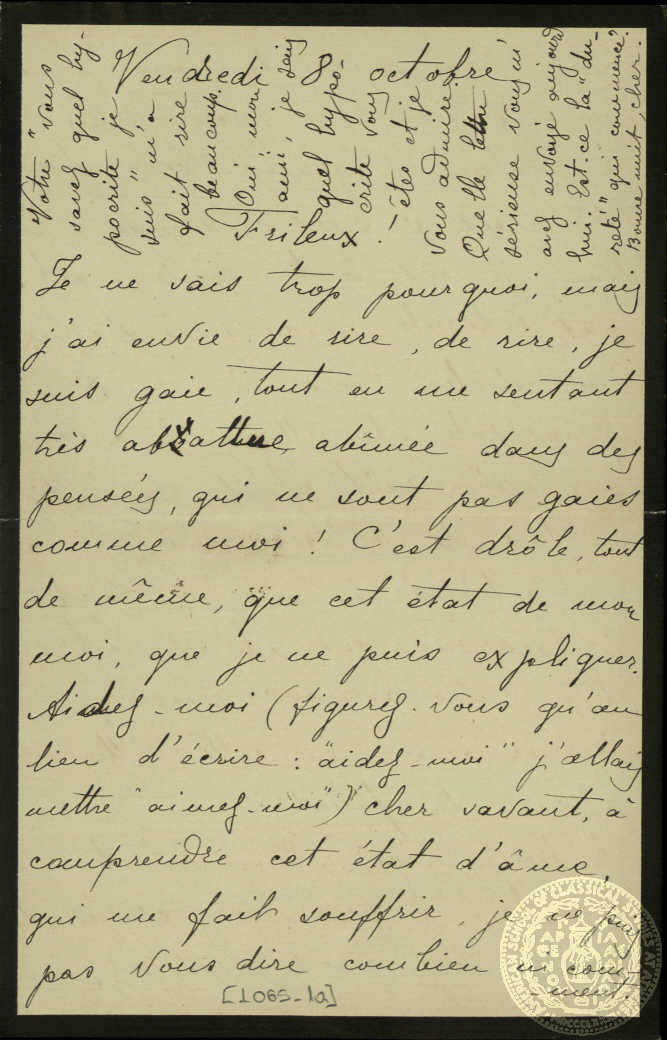 Vendredi 8 octobre
Frileux!
Je ne sais trop pourquoi, mais
j'ai envie de rire, de rire, je
suis gaie, tout en me sentant
très abattue, abîmée dans des
pensées, qui ne sont pas gaies
comme moi! C'est drôle, tout
de même, que cet état de mon
moi, que je ne puis expliquer.
Aidez-moi (figurez-vous qu'au
lieu d'écrire: "aidez-moi" j'allais
mettre "aimez-moi") cher savant, à
comprendre cet état d'âme,
qui me fait souffrir, je ne puis
pas vous dire combien ni com-
ment.
Votre "vous
savez quel hy-
pocrite je
suis" m'a
fait rire
beaucoup.
Oui mon
ami, je sais
quel hypo-
crite vous
êtes et je
vous admire.
Quelle lettre
sérieuse vous m'
avez envoyé aujourd'
hui. Est-ce la "du-
reté" qui commence?
Bonne nuit, cher.
[1065-1a]